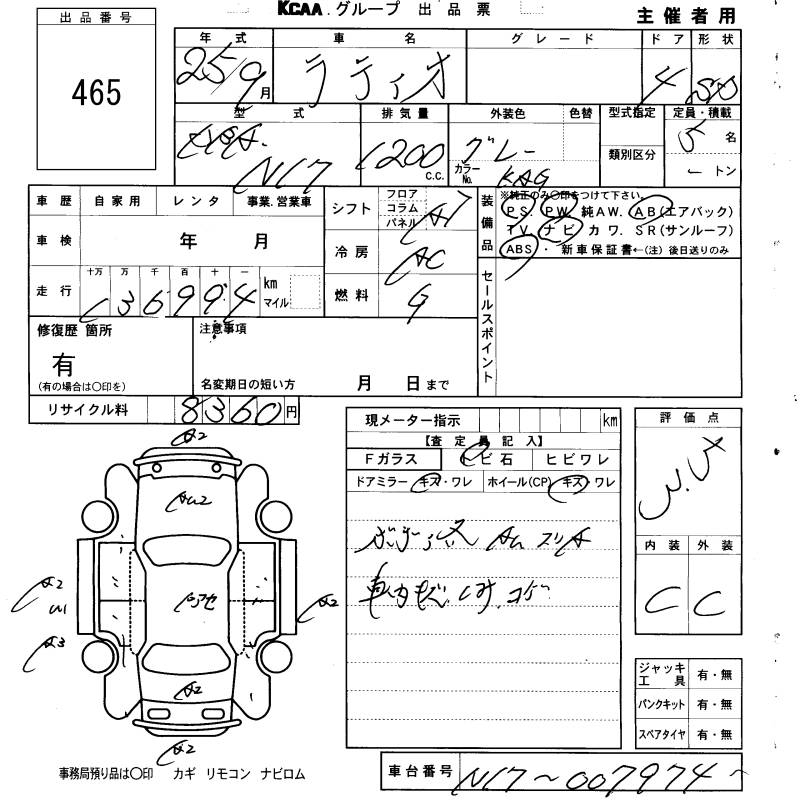 KCAA.グループ 出品票
主催者用
出品番号
465
年式 車名 グレード ドア 形状
25/9月 ラティオ 4 SD
型式 排気量 外装色 色替 型式指定 定員・積載
DBA- N17 1200 C.C. グレー カラーNo. KAG 類別区分 5名
トン
車歴 自家用 レンタ 事業.営業車
シフト フロア コラム パネル AT
装備品
※純正のみ〇印をつけて下さい。
PS. PW. 純AW. AB(エアバック)
TV. ナビ カワ. SR(サンルーフ)
ABS・ 新車保証書←(注) 後日送りのみ
車検 年 月
冷房 AC
走行 十万 万 千 百 十 一
136994 km マイル
燃料 G
セールスポイント
修復歴 箇所
有
(有の場合は〇印を)
注意事項
名変期日の短い方 月 日まで
リサイクル料 8360円
現メーター指示 km
【査定員記入】
Fガラス トビ石 ヒビワレ
ドアミラー(キズ・ワレ ホイール(CP)(キズ・ワレ
車内キズ.シミ.コゲ
評価点
3.5
内装 外装
C C
A2
A2
A2
A3
A2
A2
A2
ジャッキ工具 有・無
パンクキット 有・無
スペアタイヤ 有・無
事務局預り品は〇印 カギ リモコン ナビロム
車台番号 N17~007974~